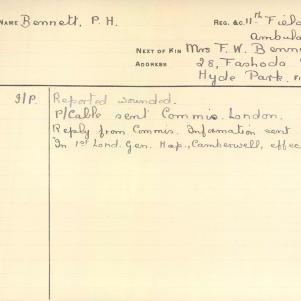 NAME Bennett, P. H.
REG. &C. 11th Field
ambula
NEXT OF KIN Mrs F. W. Benn
ADDRESS 28, Fashoda
Hyde Park.
31P. Reported wounded.
P/Cable sent Commis. London.
Reply from Commis. Information sent
In 1st Lond. Gen. Hop., Camberwell, effec